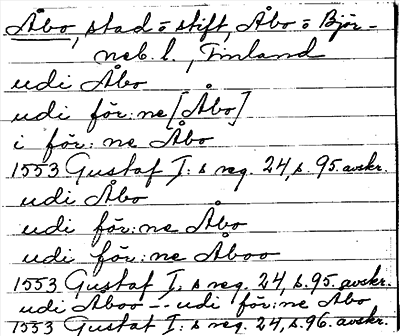 Åbo, stad ō stift, Åbo ō Björ-
neb. l., Finland
udi Åbo
udi för:ne [Åbo]
i för:ne Åbo
1553 Gustaf I:s reg. 24, s. 95. avskr.
udi Åbo
udi för:ne Åbo
udi för:ne Åboo
1553 Gustaf I:s reg. 24, s. 95. avskr.
udi Aboo -- udi för:ne Åbo
1553 Gustaf I:s reg. 24, s. 96. avskr.